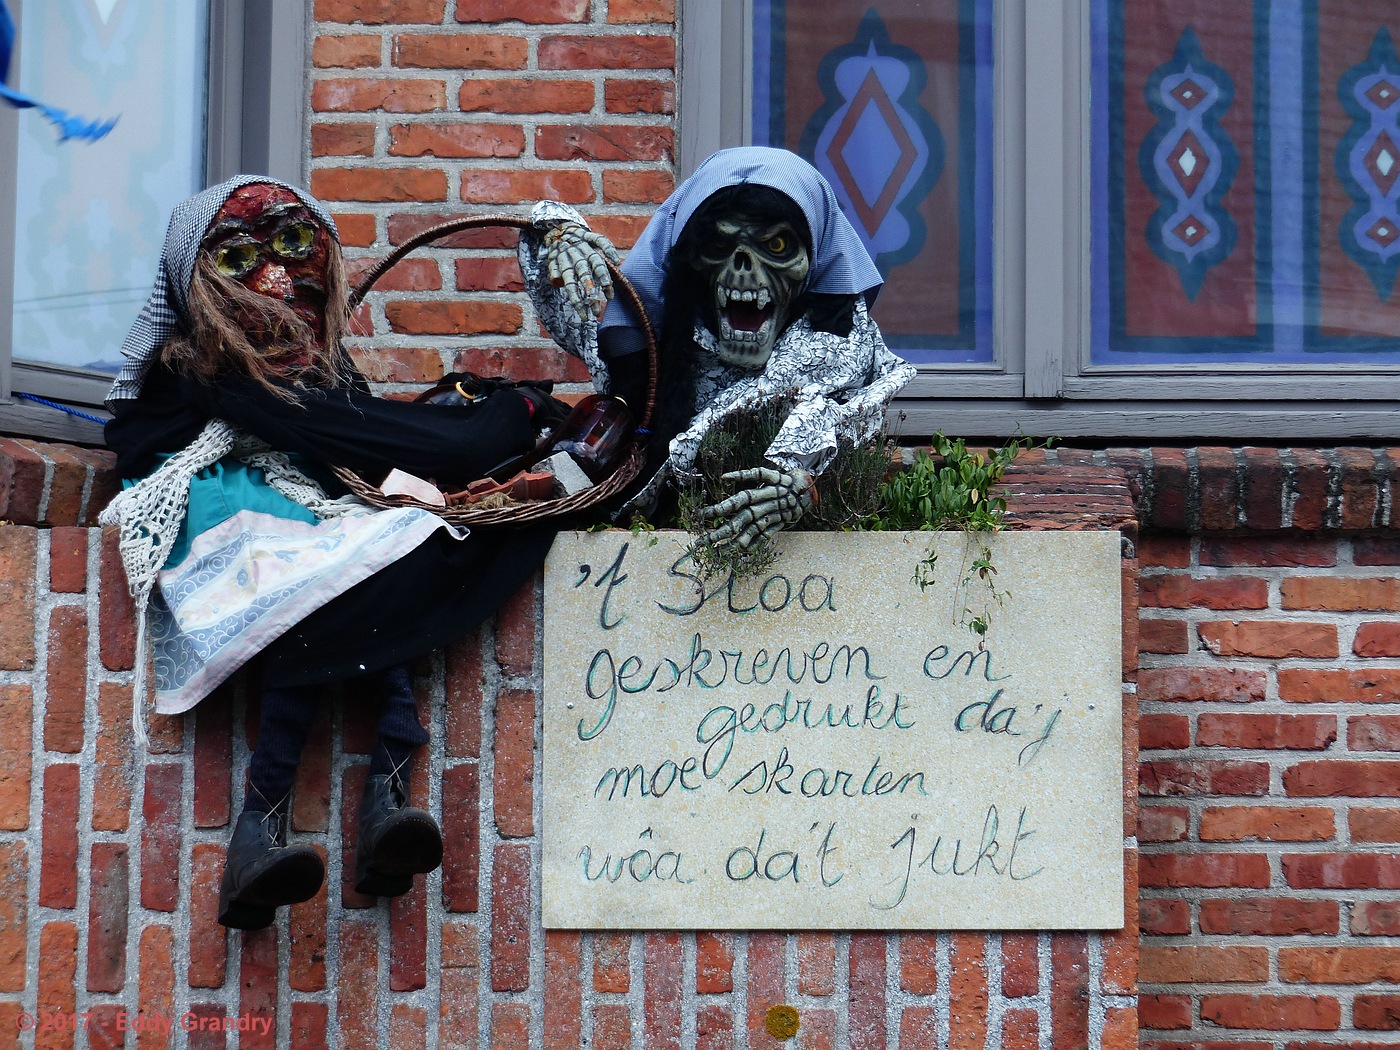 't Stoa
geskreven en
gedrukt da'j
moe skarten
wôa da't jukt
© 2017 - Eddy Grandry